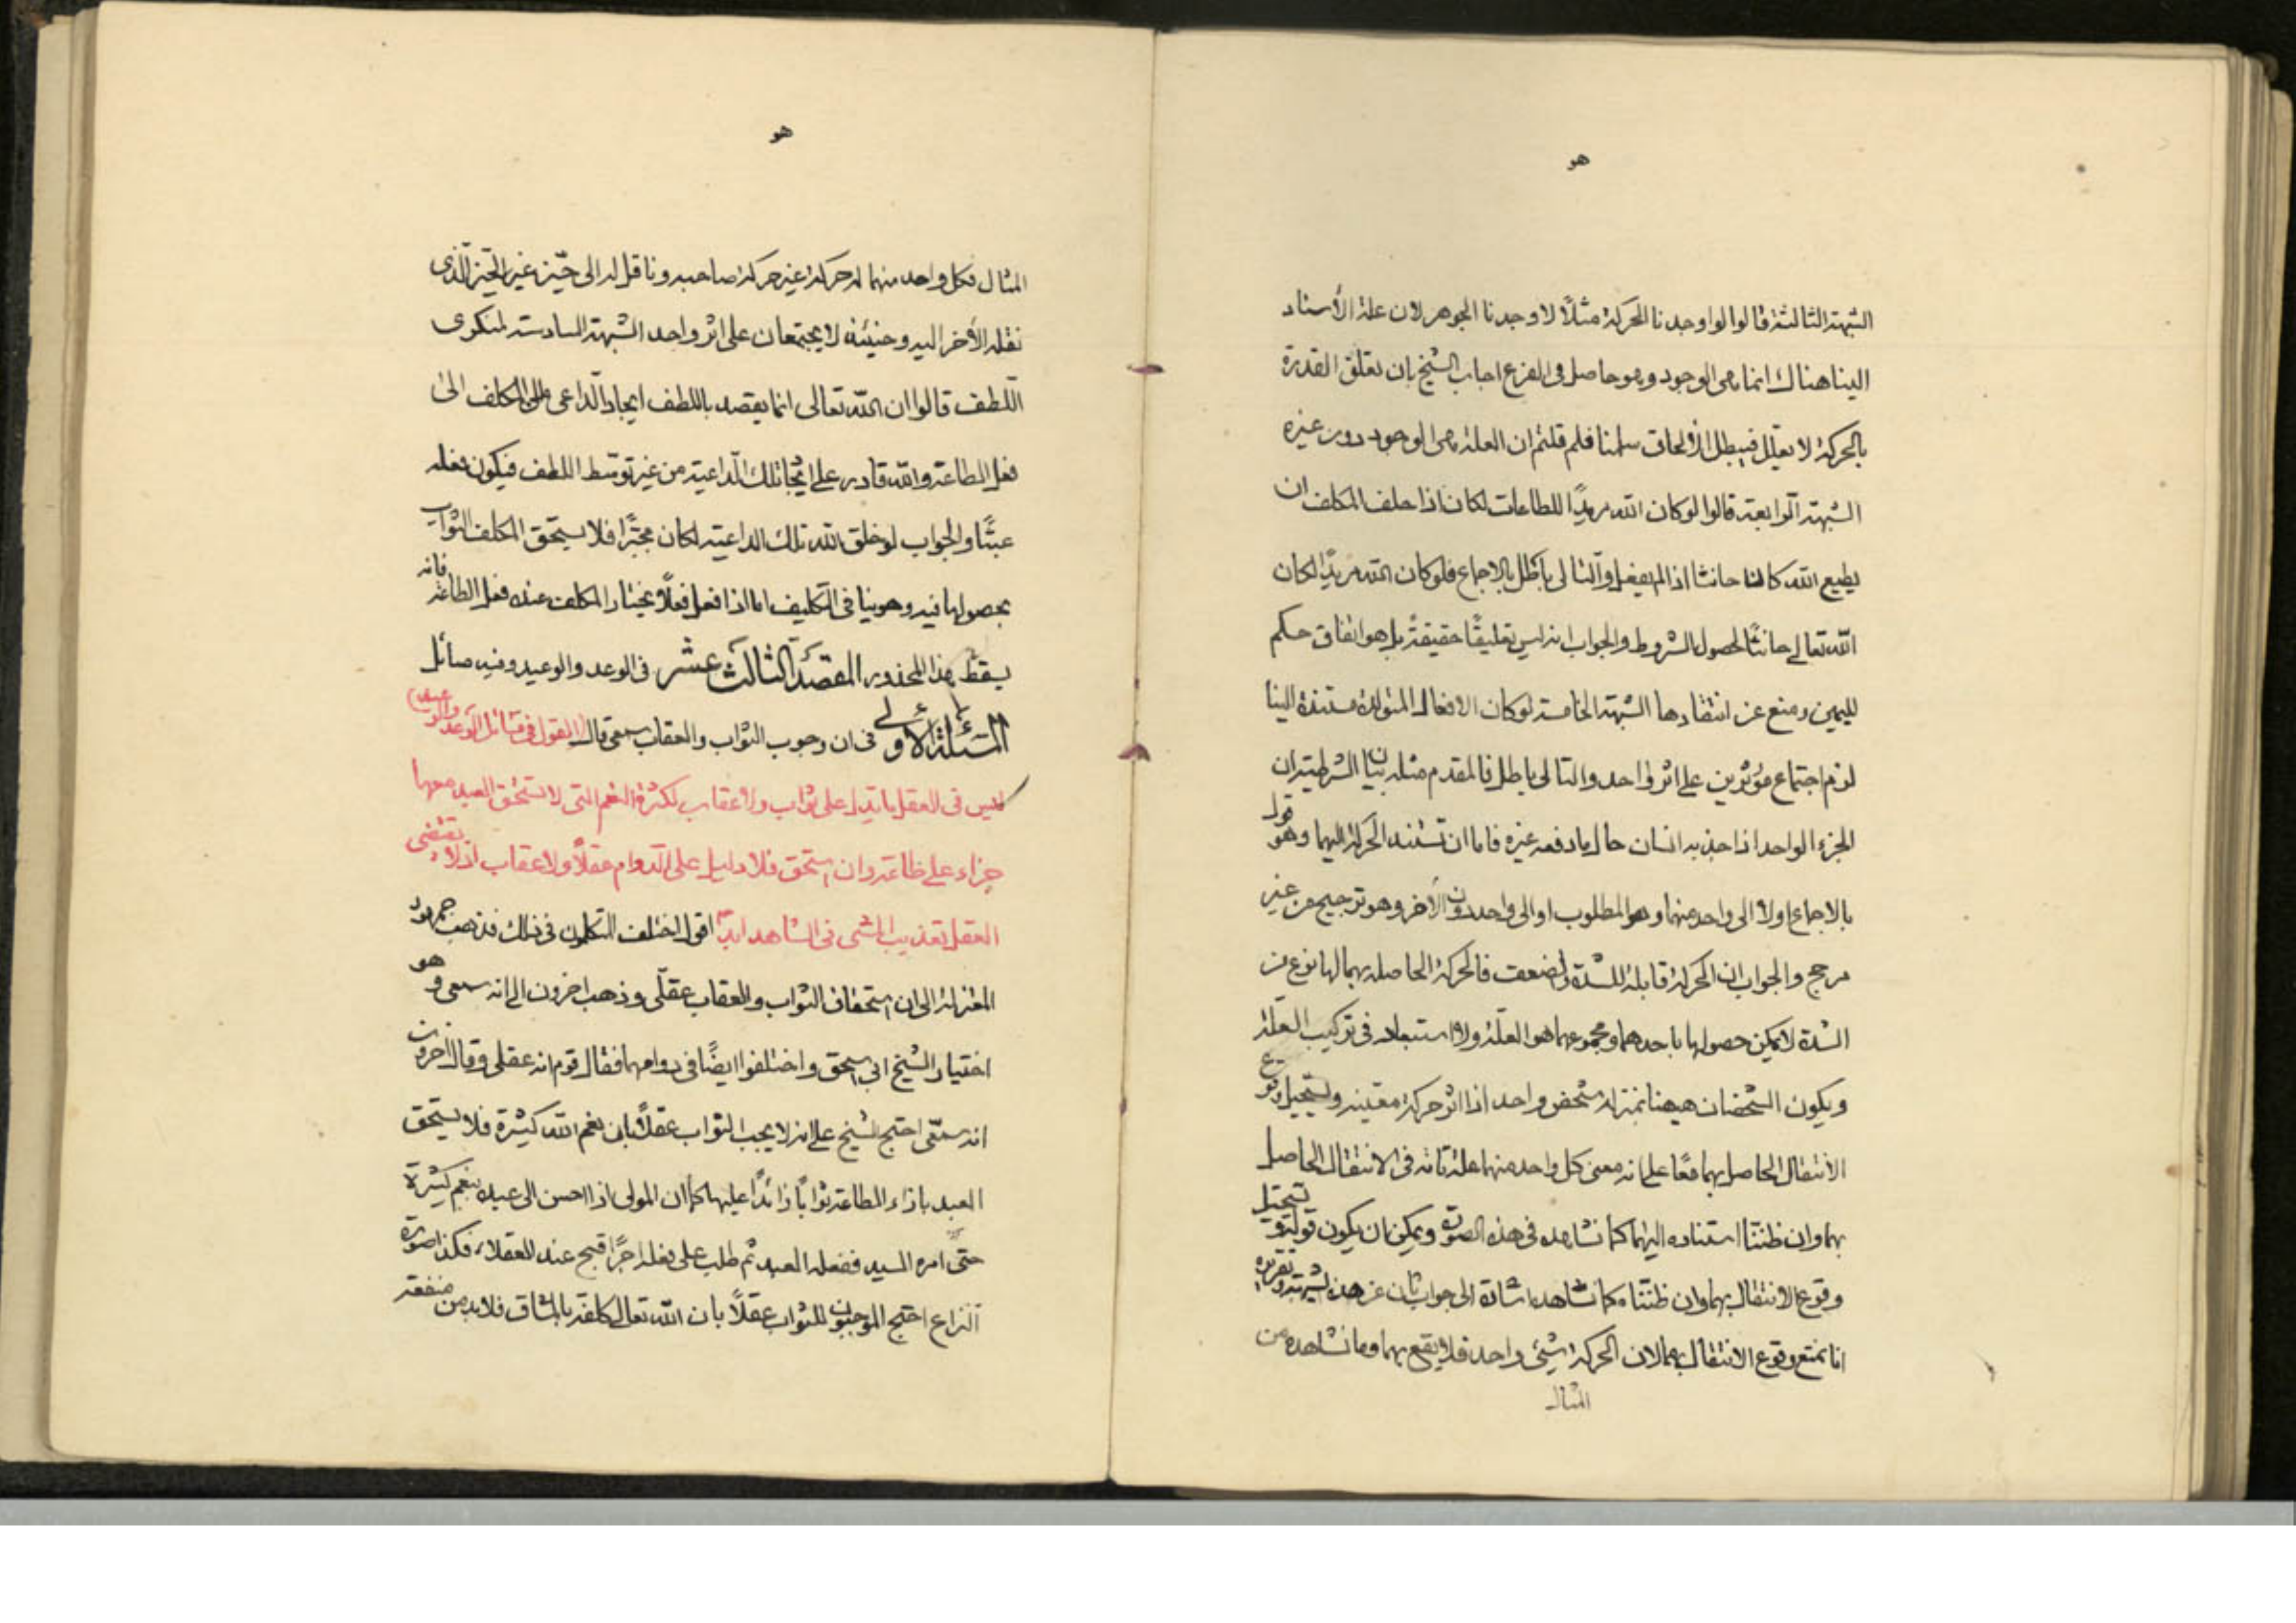 هو
الشبهة الثالثة قالوا لو اوجدنا الحركة مثلًا لاوجدنا الجوهر لان علة الأسناد
الينا هناك انما هى الوجود وهو حاصل فى الفرع اجاب الشيخ بان تعلق القدرة
بالحركة لا يعلل فيبطل الألحاق سلمنا فلم قلتم ان العلة هى الوجود دون غيره
الشبهة الرابعة قالوا لو كان الله مريدًا للطاعات لكان اذا حلف المكلف ان
يطيع الله كان حانثا اذا لم يفعل والتالى باطل بالاجماع فلو كان الله مريدًا لكان
الله تعالى حانثًا لحصول الشروط والجواب انه ليس تعليقًا حقيقةً بل هو اتفاق حكم
لليمين ومنع عن انتقادها الشبهة الخامسة لو كان الافعال المتولدة مستندة الينا
لزم اجتماع مؤثرين على اثر واحد والتالى باطل فالمقدم مثله بيان الشرطية ان
الجزء الواحد اذا جذبه انسان حال ما دفعه غيره فاما ان تستند الحركة اليهما وهو قول
بالاجماع اولا الى واحد منهما وهو المطلوب او الى واحد دون الأخر وهو ترجيح من غير
مرجح والجواب ان الحركة قابلة للشدة والضعف فالحركة الحاصلة بهما لها نوع من
الشدة لا يمكن حصولها باحدهما ومجموعهما هو العلة ولا استبعاد فى تركيب العلة
ويكون الشخصان ههنا بمنزلة شخص واحد اذا اثر حركة معينة ويستحيل وقوع
الأنتقال الحاصل بهما معًا على انه معنى كل واحد منهما علة تامة فى الانتقال الحاصل
بهما وان ظننا استناده اليهما كما نشاهده فى هذه الصورة ويمكن ان يكون قوله ويستحيل
وقوع الانتقال بهما وان ظنناه كما نشاهد اشارة الى جواب ثان عن هذه الشبهة وتقريره
انا نمنع وقوع الانتقال بهما لان الحركة شيئ واحد فلا يقع بهما وما نشاهده من
المثال
هو
المثال فكل واحد منهما له حركة غير حركة صاحبه وناقل له الى حيّز غير الحيّز الذى
نقله الأخر اليه وحينئذ لا يجتمعان على اثر واحد الشبهة السادسة لمنكرى
اللطف قالوا ان الله تعالى انما يقصد باللطف ايجاد الداعى للمكلف الى
فعل الطاعة والله قادر على ايجاد تلك الداعية من غير توسّط اللطف فيكون فعله
عبثًا والجواب لو خلق الله تلك الداعية لكان مجبرًا فلا يستحق المكلف الثواب
بحصولها فيه وهو ينافى التكليف اما اذا فعل فعلًا يختار المكلف عنده فعل الطاعة فانه
يسقط هذا المحذور المقصد الثالث عشر فى الوعد والوعيد وفيه مسائل
المسئلة الأولى فى ان وجوب الثواب والعقاب سمعى قال (القول فى مسائل الوعد والوعيد)
ليس فى العقل ما يدل على ثواب ولا عقاب لكثرة النعم التى لا تستحق العبد معها
جزاء على طاعة وان استحق فلا دليل على الدوام عقلًا ولا عقاب اذ لا يقتضى
العقل تعذيب المسئ فى الشاهد ابدًا اقول اختلف المتكلمون فى ذلك فذهب جمهور
المعتزلة الى ان استحقاق الثواب والعقاب عقلّى وذهب اخرون الى انه سمعى وهو
اختيار الشيخ ابى اسحق واختلفوا ايضًا فى دوامهما فقال قوم انه عقلى وقال اخرون
انه سمعّى احتج الشيخ على انه لا يجب الثواب عقلًا بان نعم الله كثيرة فلا يستحق
العبد بازاء الطاعة ثوابًا زائدًا عليها كما ان المولى اذا احسن الى عبده بنعم كثيرة
حتّى امره السيد ففعله العبد ثم طلب على فعله اجرًا قبح عند العقلاء فكذا صورة
النزاع احتج الموجبون للثواب عقلًا بان الله تعالى كلفه بالمشاق فلا بد من منفعة